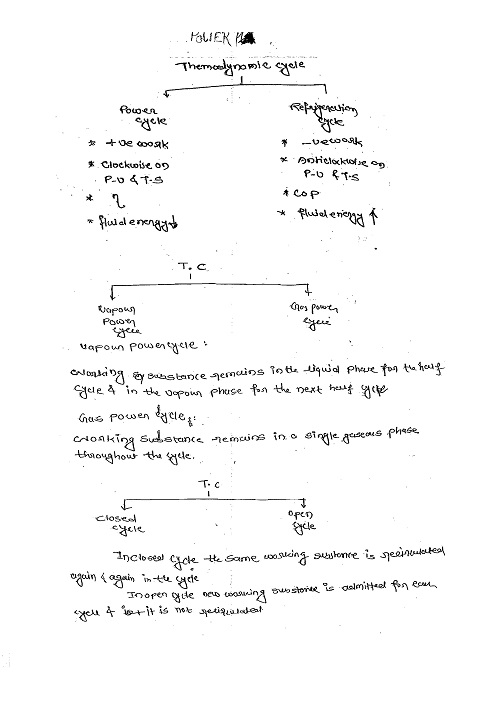 POWER
Thermodynamic cycle
Power cycle
Refrigeration cycle
* +ve work
* -ve work
* Clockwise on P-V & T-S
* Anticlockwise on P-V & T-S
* η
* COP
* fluid energy ↓
* fluid energy ↑
T.C
Vapour Power cycle
Gas power cycle
Vapour power cycle:
Working substance remains in the liquid phase for the half
cycle & in the vapour phase for the next half cycle
Gas power cycle:
Working substance remains in a single gaseous phase
throughout the cycle.
T.C
closed cycle
open cycle
In closed cycle the same working substance is recirculated
again & again in the cycle
In open cycle new working substance is admitted for each
cycle & it is not recirculated